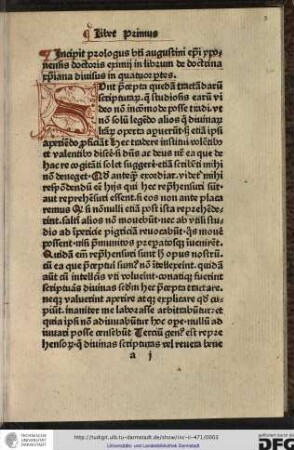 ¶ Liber Primus
Incipit prologus bti augustini epi ypo-
nensis doctoris eximij in librum de doctrina
xpiana diuisus in quatuor ptes.
Sunt pcepta quedã tractãdarũ
scripturarũ q̃ studiosis earũ vi
deo nõ incõmode posse tradi. vt
nõ solũ legẽdo alios q̃ diuinarũ
lrãrũ operta apuerũt sʒ etiã ipsi
apiẽdo pficiãt Hec tradere institui volẽtibʒ
et valentibʒ discere si dñs ac deus nr̃ ea que de
hac re cogitãti solet suggere etiã scribẽti mihi
nõ deneget Qd anteq̃ exordiar. videt̃ mihi
respõdendũ eẽ hijs qui hec reprehensuri sũt
aut reprehẽsuri essent. si eos non ante placa
remus Qʒ si nõnulli etiã post ista reprehẽde
rint. saltẽ alios nõ mouebũt. nec ab vtili stu
dio ad ipericie pigriciã reuocabũt. q̃s moue
possent. nisi pmunitos prepatosqʒ iuenirẽt.
Quidã eĩ reprehẽsuri sunt hʒ opus nostrũ.
cũ ea que pcepturi sumʒ nõ ĩtellexerint. quidã
aũt cũ intellectis vti voluerint. conatiqʒ fuerint
scripturas diuinas sedm hec pcepta tractare.
neqʒ valuerint aperire atqʒ explicare qd cu-
piũt. inaniter me laborasse arbitrabũtur. et
quia ipsi nõ adiuuabũtur hoc ope. nullũ ad
iuuari posse censebũt Terciũ genʒ est repre
hensorʒ q̃ diuinas scripturas vel reuera bene
a j
TECHNISCHE UNIVERSITÄT DARMSTADT
http://tudigit.ulb.tu-darmstadt.de/show/inc-ii-471/0003
Universitäts- und Landesbibliothek Darmstadt
DFG